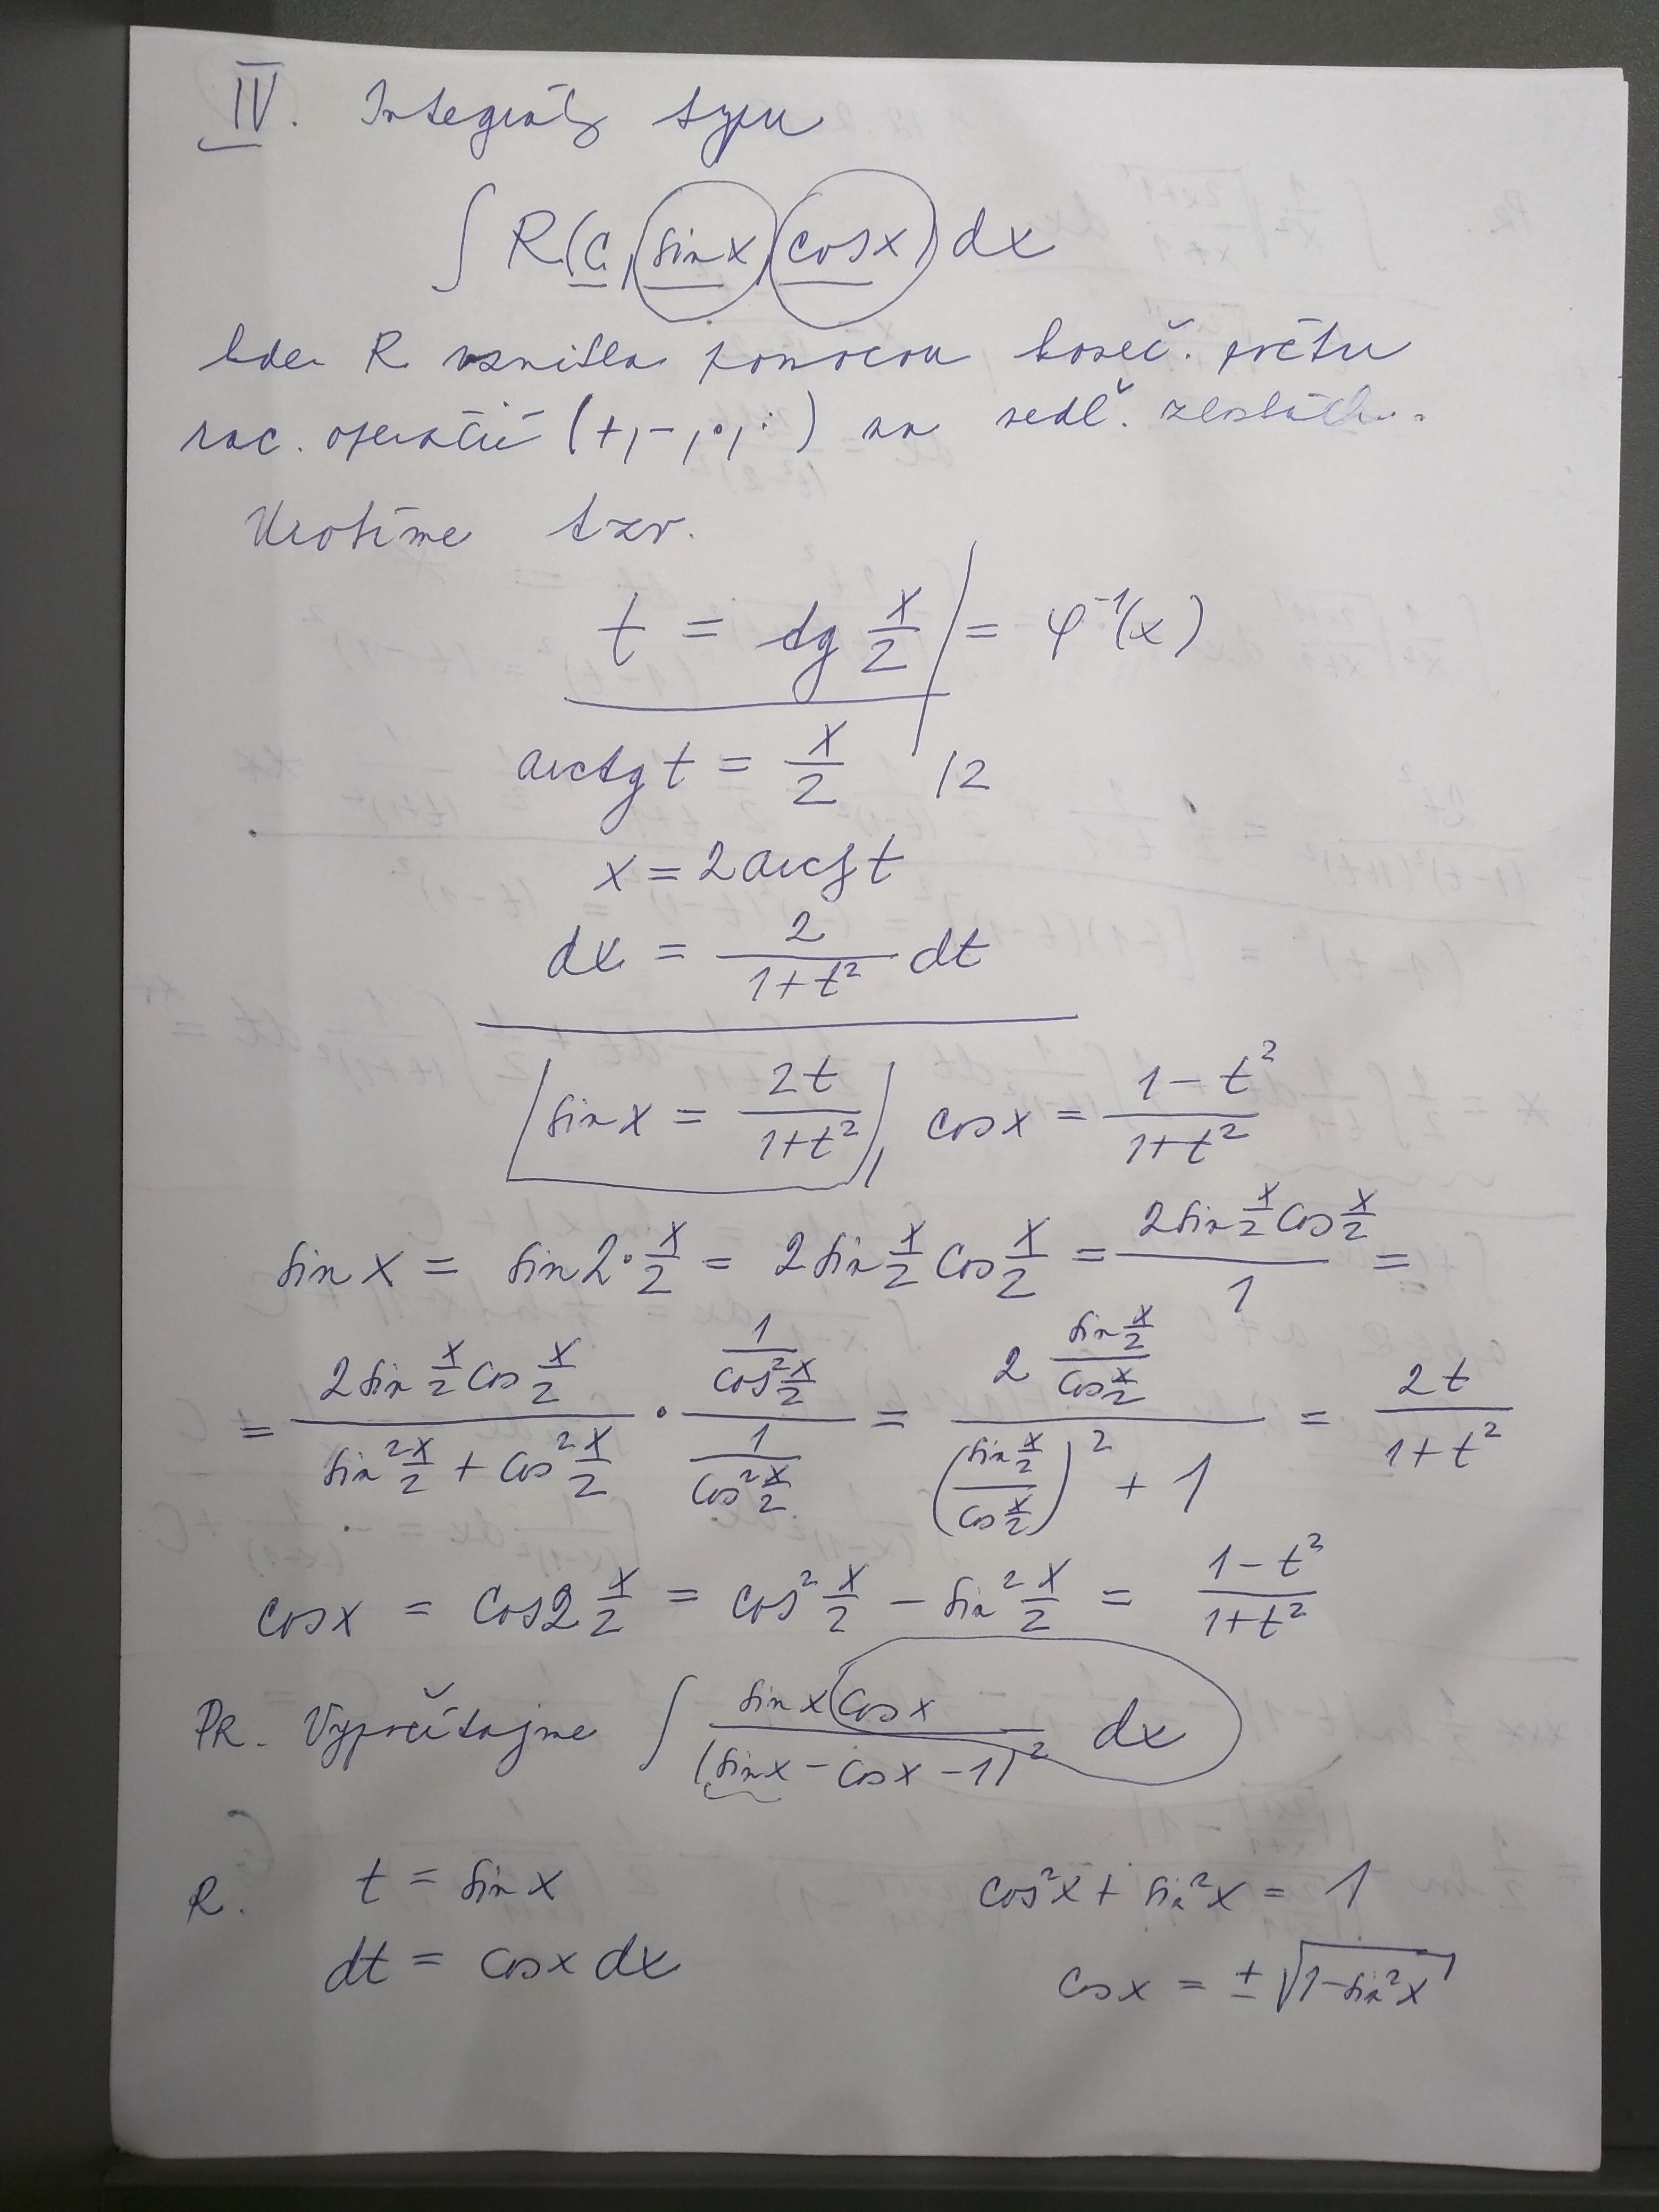 IV. Integrály typu
∫ R(c, sin x, cos x) dx
kde R vznikla pomocou koneč. počtu
rac. operácií (+, -, ·, :) na uvedč. zložkách.
Urobíme tzv.
t = tg x/2 | = φ⁻¹(x)
arctg t = x/2 /2
x = 2 arctg t
dx = 2/(1+t²) dt
sin x = 2t/(1+t²), cos x = (1-t²)/(1+t²)
sin x = sin 2·x/2 = 2 sin x/2 cos x/2 = (2 sin x/2 cos x/2)/1 =
= (2 sin x/2 cos x/2)/(sin² x/2 + cos² x/2) · (1/(cos² x/2))/(1/(cos² x/2)) = (2 (sin x/2)/(cos x/2))/(((sin x/2)/(cos x/2))² + 1) = 2t/(1+t²)
cos x = cos 2 x/2 = cos² x/2 - sin² x/2 = (1-t²)/(1+t²)
PR. Vypočítajme ∫ (sin x cos x)/(sin x - cos x - 1)² dx
R. t = sin x cos²x + sin²x = 1
dt = cos x dx cos x = ±√(1-sin²x)